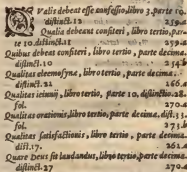 QValis debeat esse confessio, libro 3. parte 10.
distinct. 12 259.a
Qualia debeant confiteri, libro tertio, par-
te 10. distinct. 11 259.a
Quibus debeat confiteri, libro tertio, parte decima.
distinct. 10 254.a
Qualitas eleemosynæ, libro tertio, parte decima.
distinct. 21 266.a
Qualitas ieiunij, libro tertio, parte 10. distinctio. 28.
fol. 270.a
Qualitas orationis, libro tertio, parte decima, dist. 35.
fol. 275.b
Qualitas satisfactionis, libro tertio, parte decima,
dist. 17. 262.a
Quare Deus sit laudandus, libro tertio, parte decima,
distinct. 27 270.a